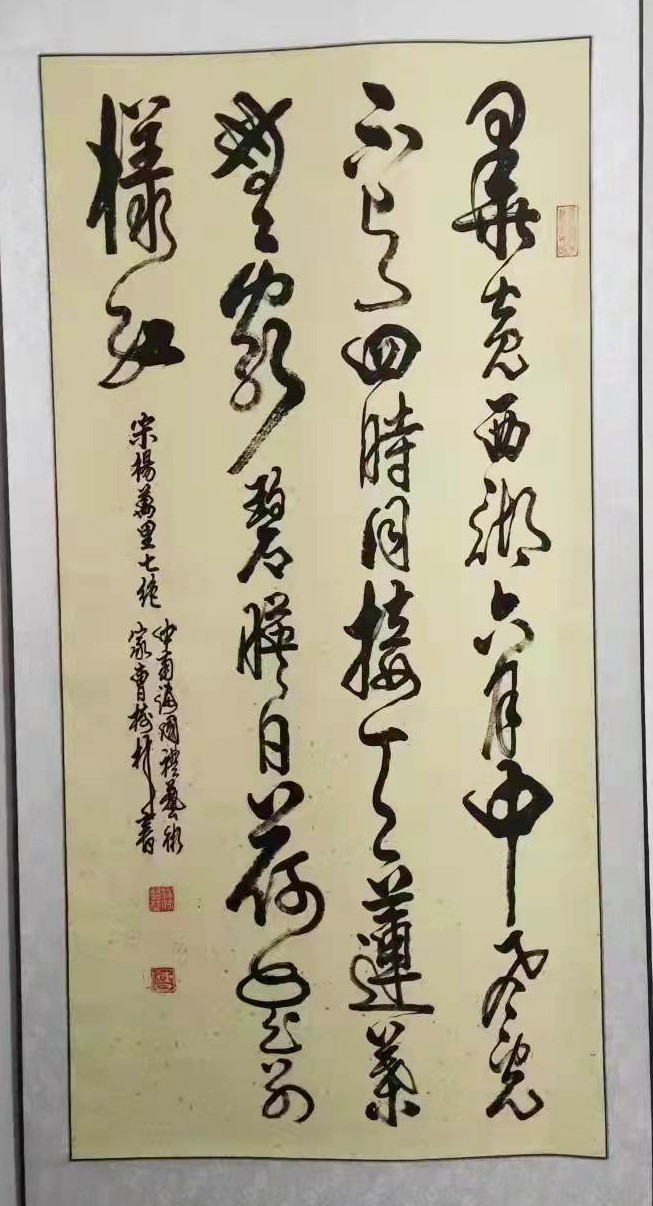 畢竟西湖六月中風光
不与四時同接天蓮葉
無窮碧暎日荷花別
樣紅
宋楊萬里七絕
中南海國禮藝術
家曹樹書